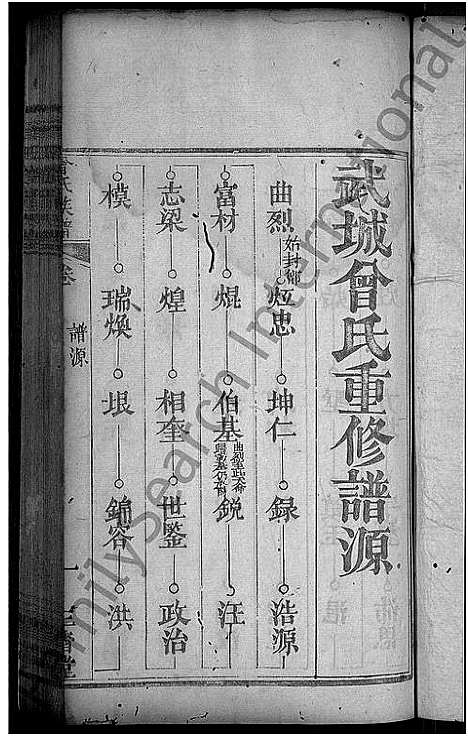 武城曾氏重修譜源
曲烈 始封鄫 㶷忠 坤仁 録 浩源
富材 焜 伯基 鋭 汪
志梁 煌 相奎 世鑒 政治
模 瑞煥 垠 錦容 洪
譜源
FamilySearch International